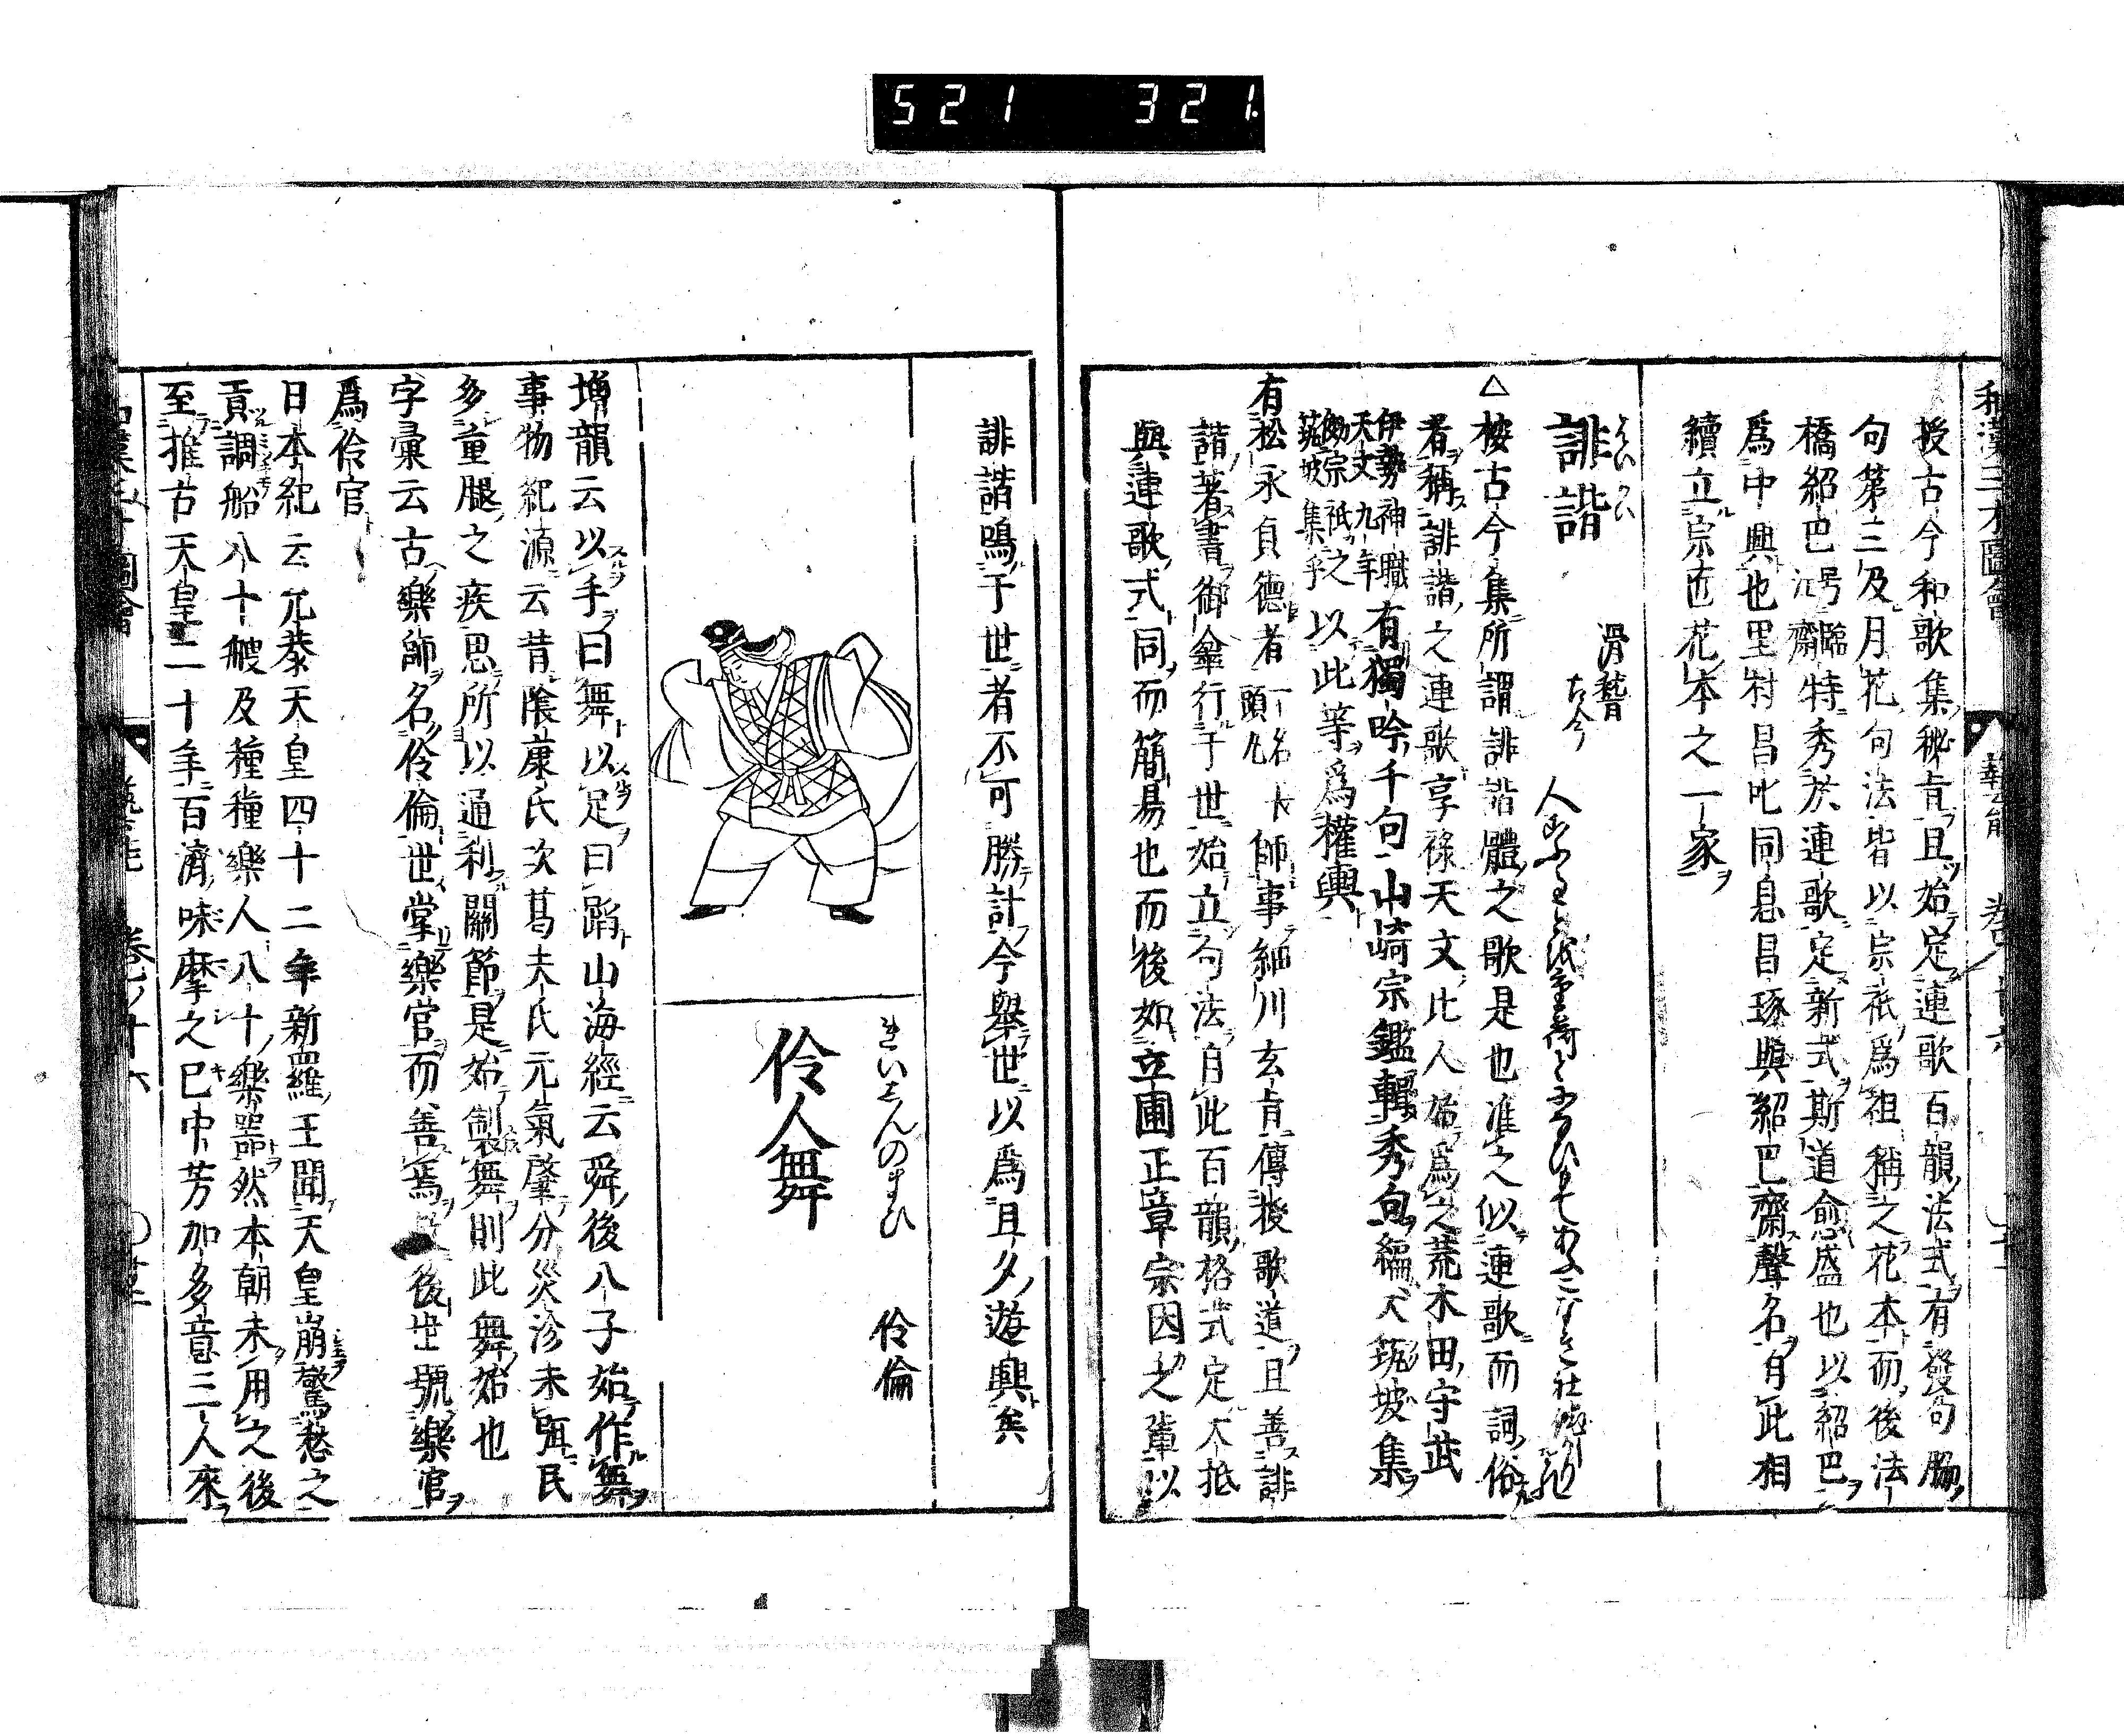 521 321
和漢三才圖會 藝能
授古今和歌集秘旨且始定連歌百韻法式有發句脇
句第三及月花句法皆以宗祇爲祖稱之花本而後法
橋紹巴号臨江齋特秀於連歌定新式斯道愈盛也以紹巴
爲中興也里村昌叱同息昌琢與紹巴齋聲名自此相
續立宗匠花本之一家
はいかい
誹諧
滑稽
古今
△按古今集所謂誹諧體之歌是也准之似連歌而詞俗
者稱誹諧之連歌享祿天文比人始爲之荒木田守武
伊勢神職
天文九年
有獨吟千句山崎宗鑑輯秀句編犬筑坡集
傚宗祇之
筑坡集乎
以此等爲權輿
有松永貞德者一名長頭丸師事細川玄旨傳授歌道且善誹
諧著書御傘行于世始立句法自此百韻格式定大抵
與連歌式同而簡易也而後如立圃正章宗因之輩以
誹諧鳴于世者不可勝計今舉世以爲且夕遊興矣
れいじんのまひ
伶人舞
伶倫
增韻云以手曰舞以足曰蹈山海經云舜後八子始作舞
事物紀源云昔陰康氏次葛天氏元氣肇分災沴未弭民
多重腿之疾思所以通利關節是始製舞則此舞始也
字彙云古樂師名伶倫世掌樂官而善焉 後世號樂官
爲伶官
日本紀云允恭天皇四十二年新羅王聞天皇崩驚愁之
貢調船八十艘及種種樂人八十樂器然本朝未用之後
至推古天皇二十年百濟味摩之巳中芳加多意三人來